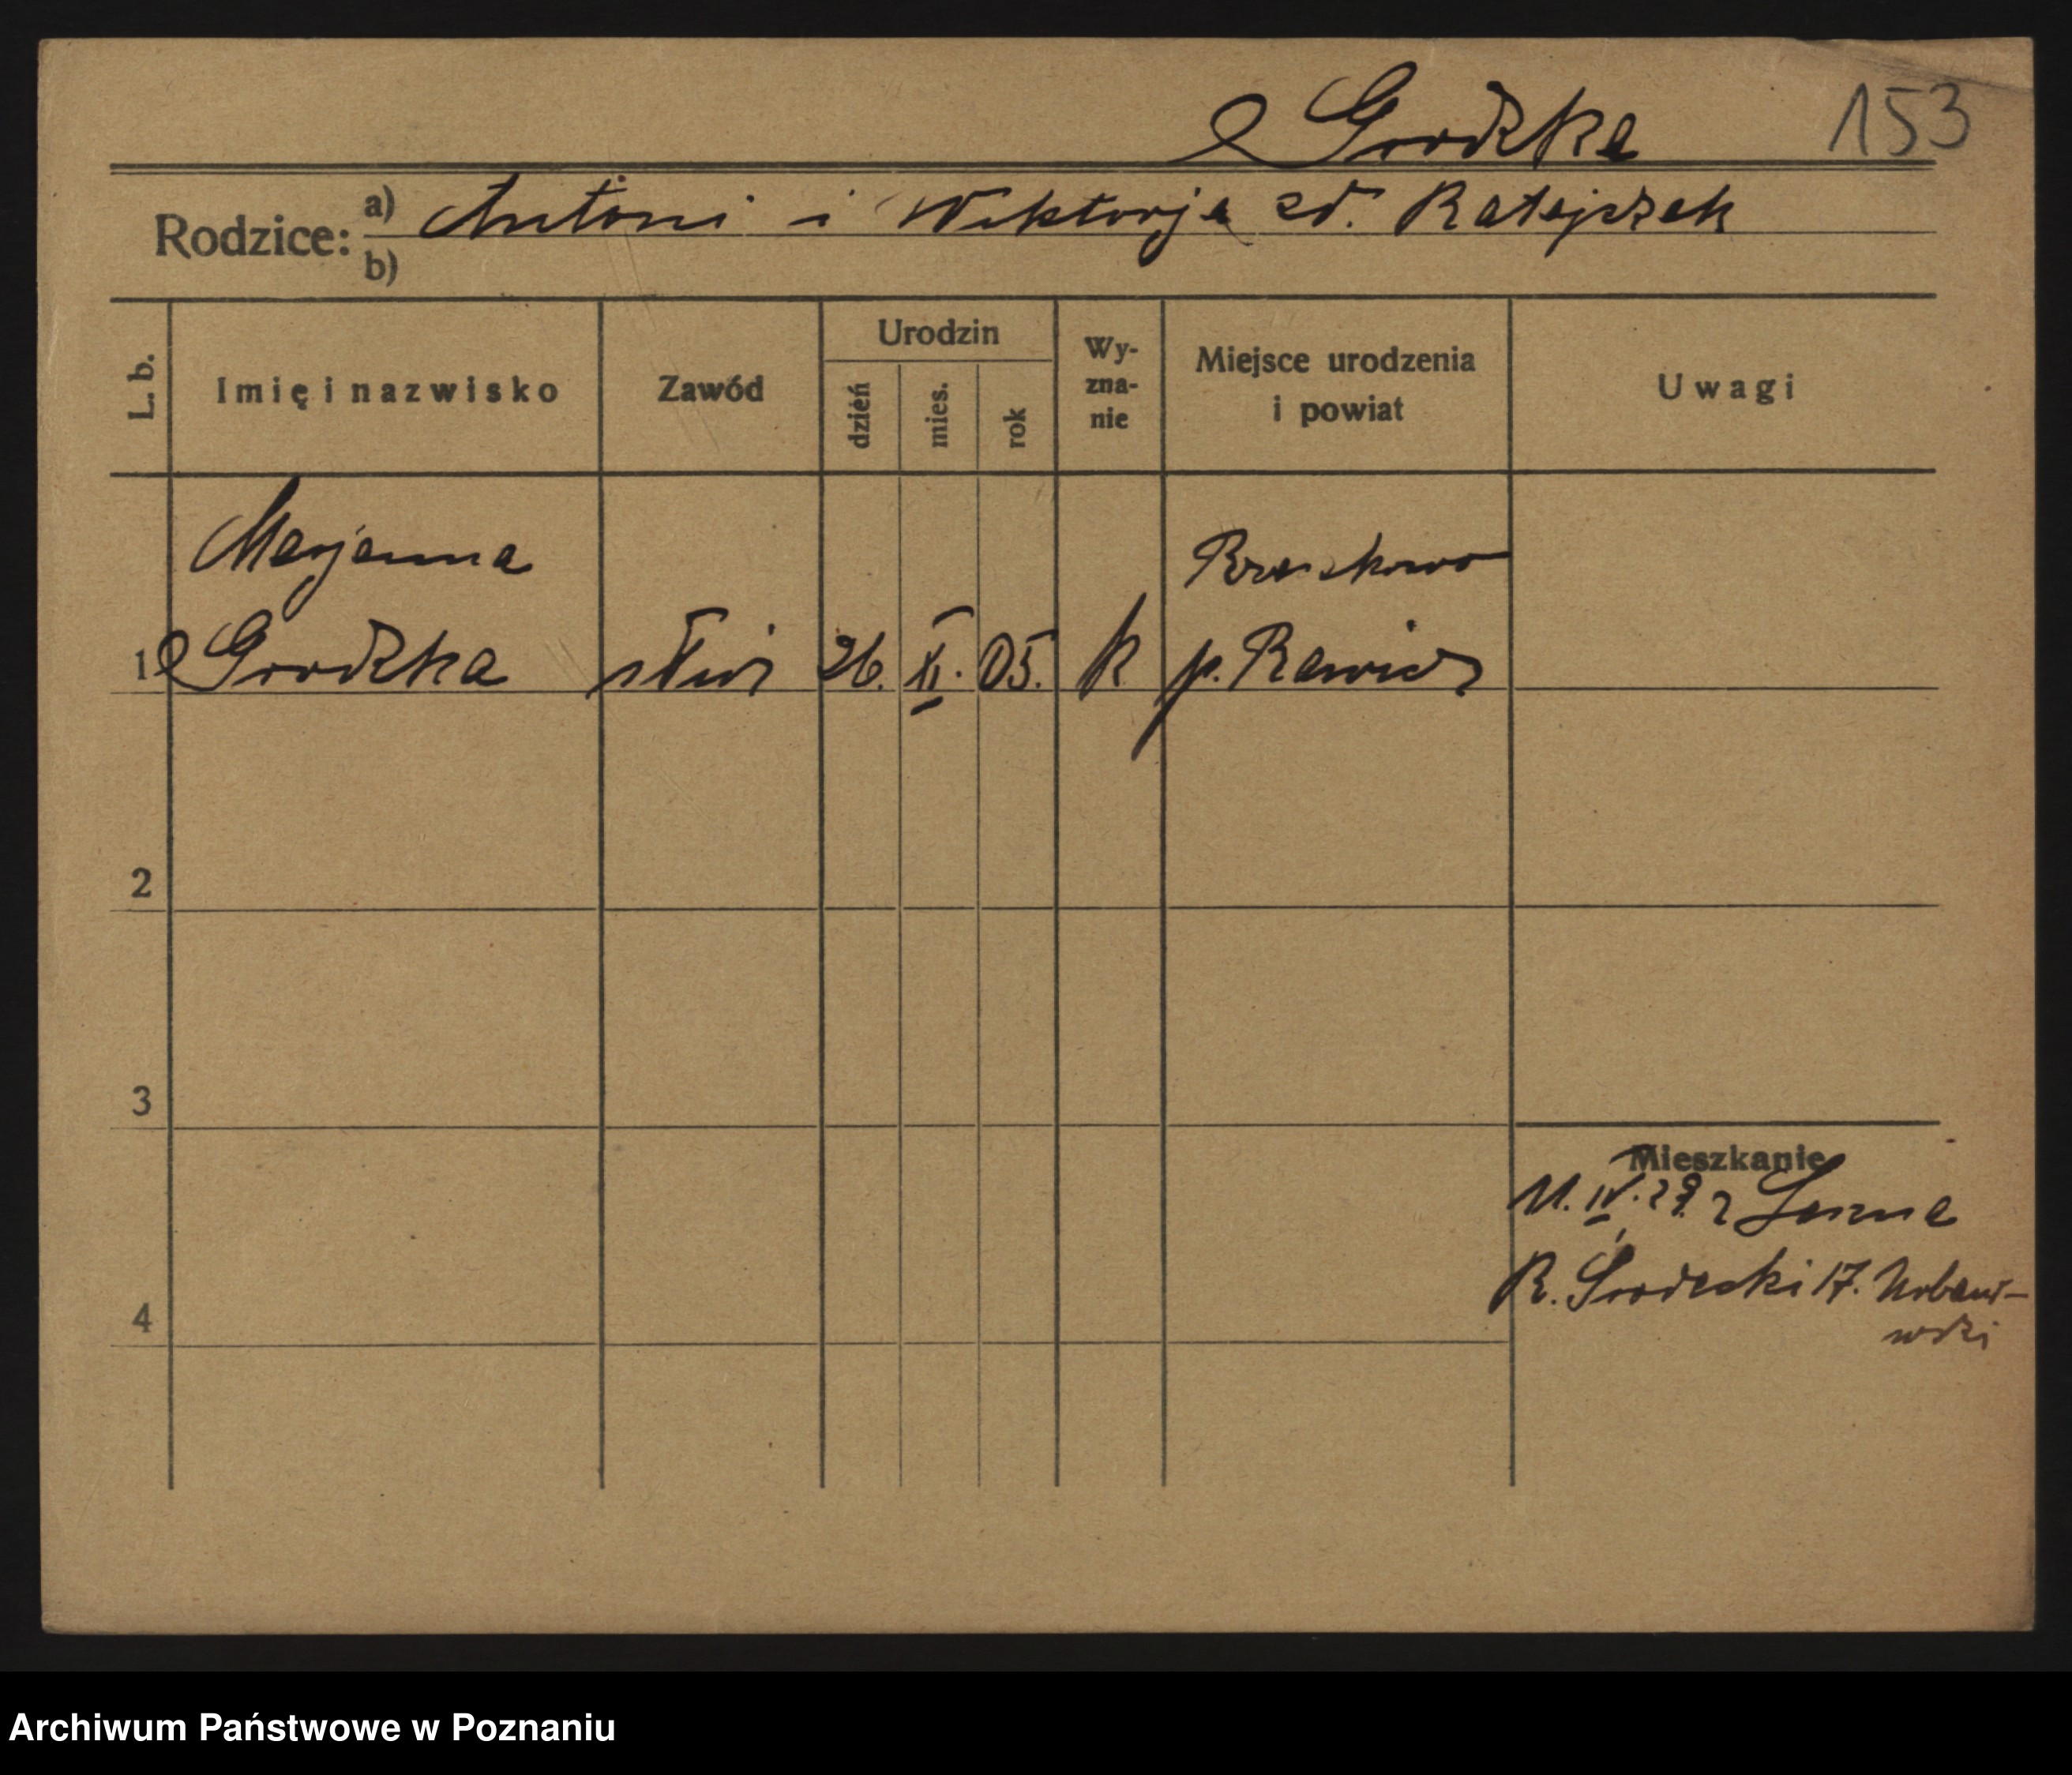 Grodzka 153
Rodzice: a) Antoni i Wiktorja zd. Ratajczak
b)
L. b. Imię i nazwisko Zawód Urodzin dzień mies. rok Wy-zna-nie Miejsce urodzenia i powiat Uwagi
Marjanna
1 Grodzka służ 26. XI. 05. k p. Rawicz
2
3
4
Mieszkanie
11. IV. 29. z Leszna
R. Śródecki 17.
Archiwum Państwowe w Poznaniu